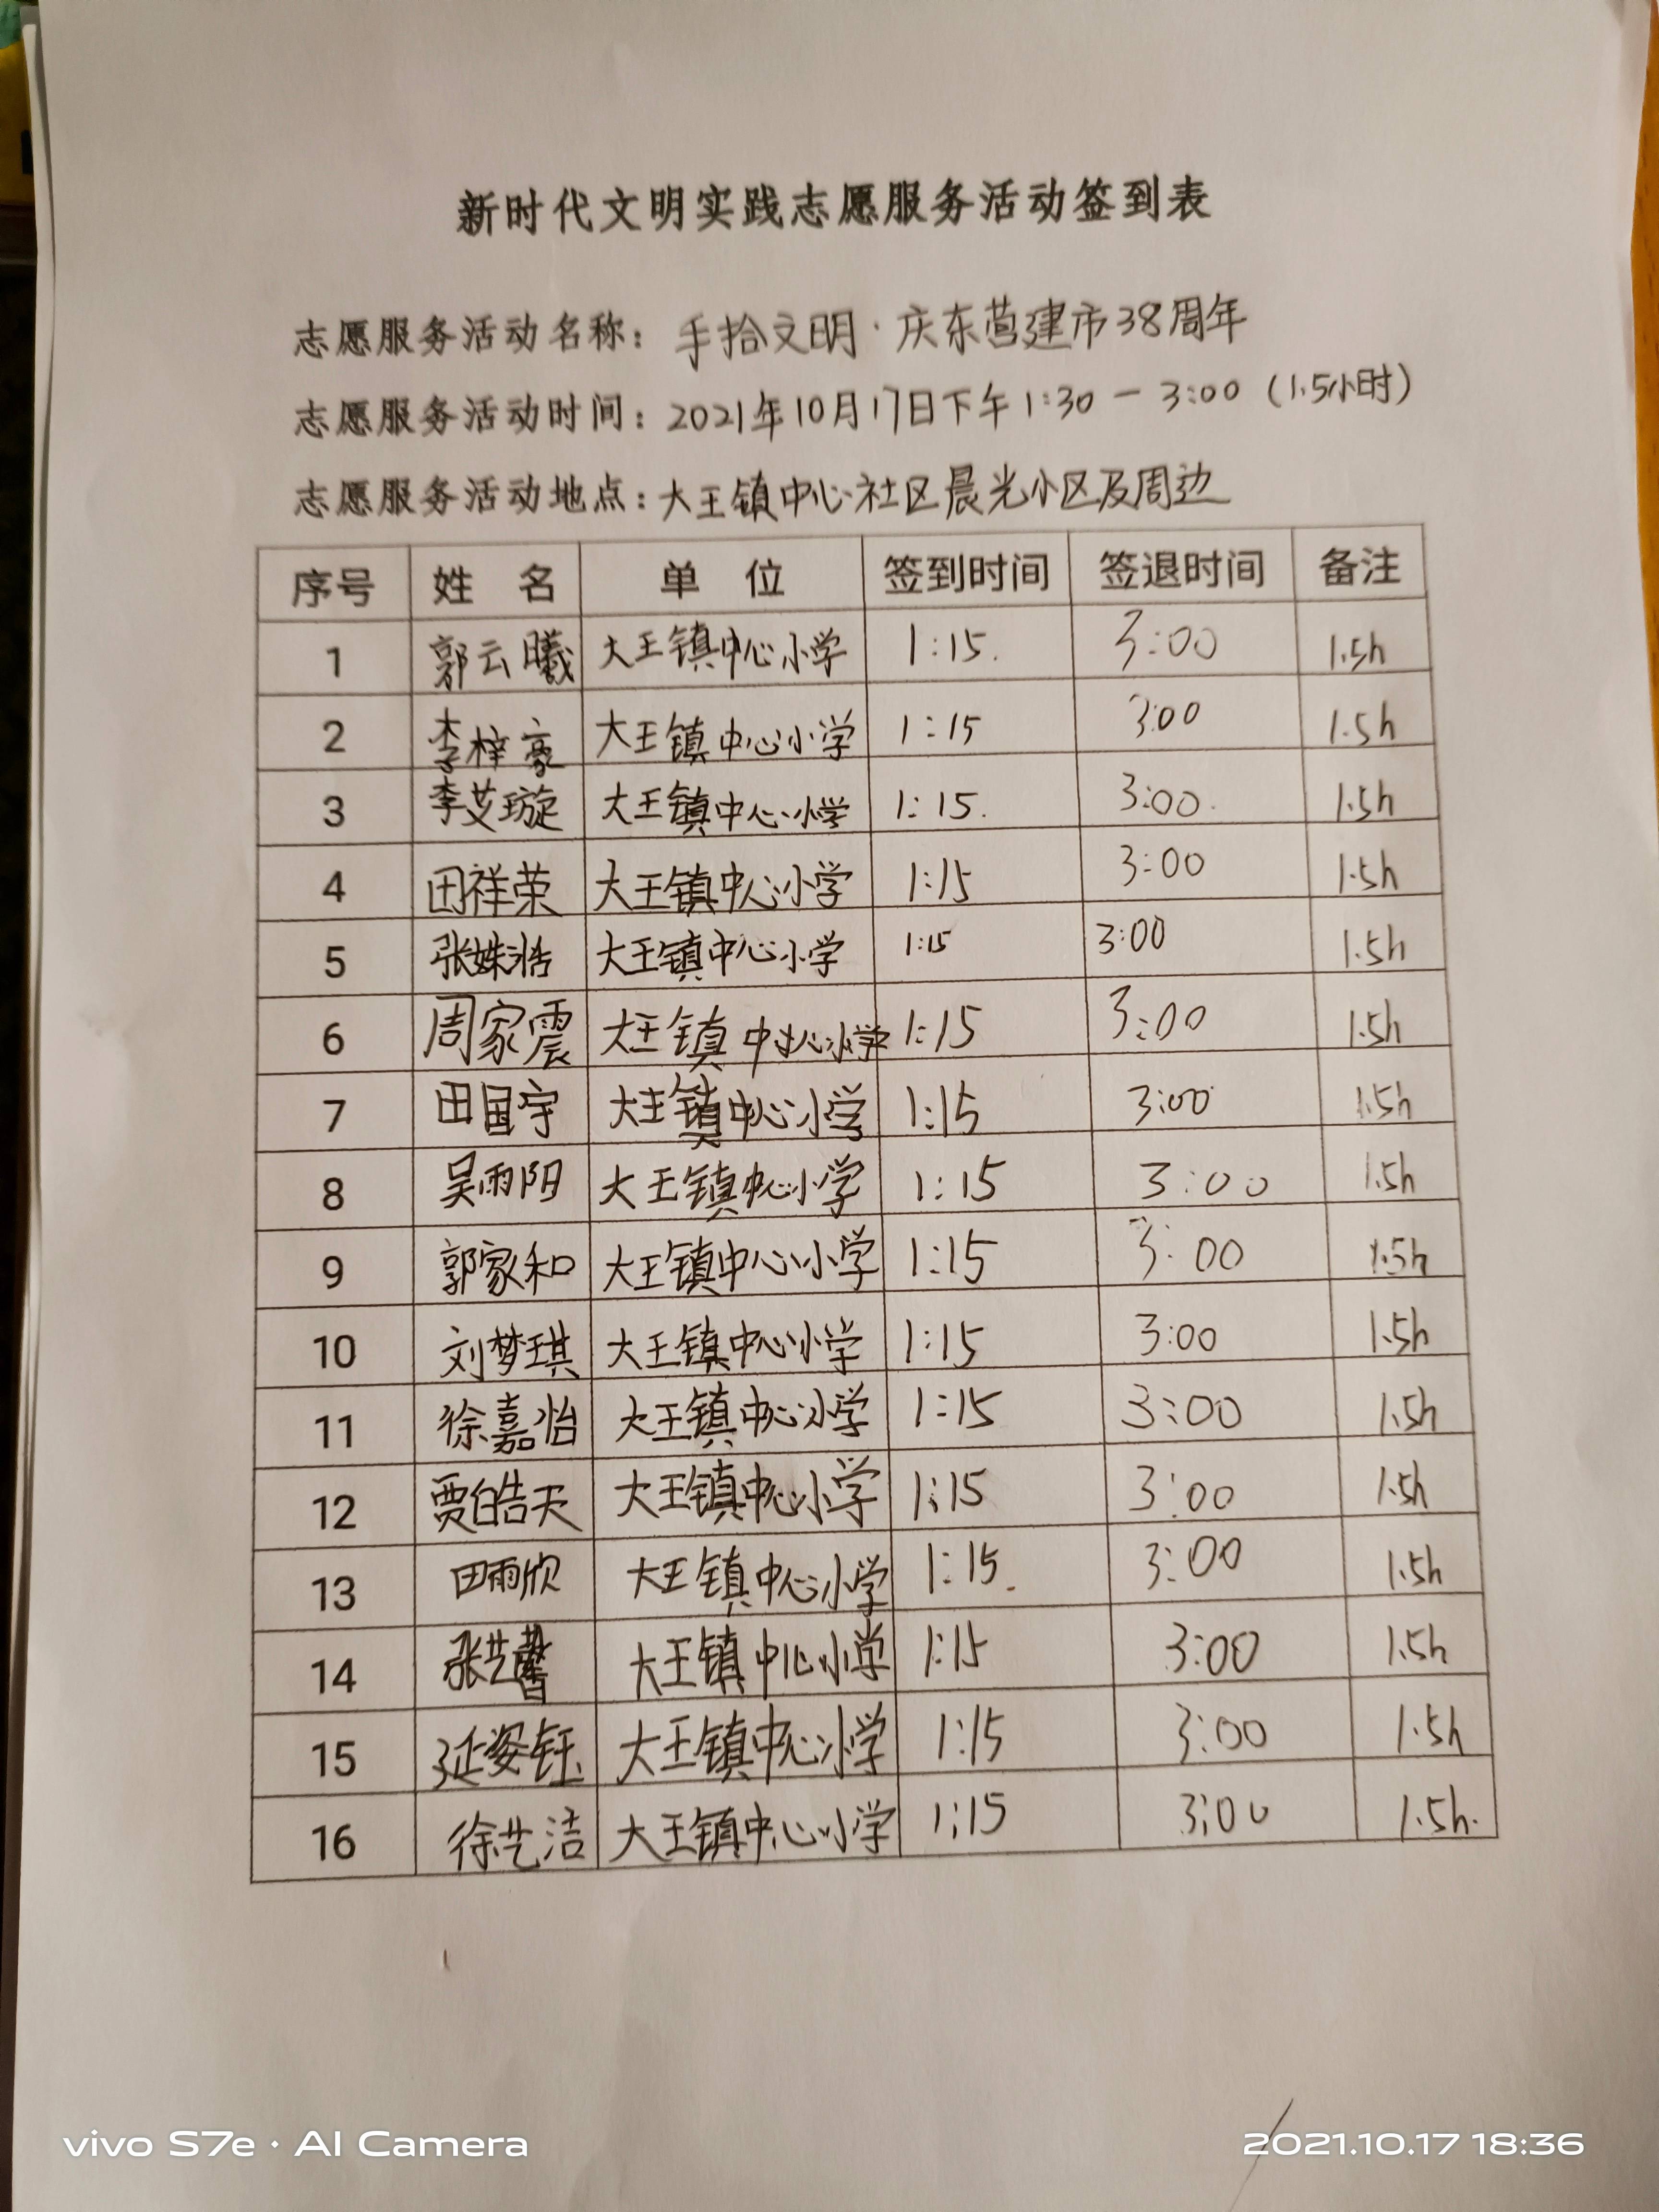 新时代文明实践志愿服务活动签到表
志愿服务活动名称：手拾文明·庆东营建市38周年
志愿服务活动时间：2021年10月17日下午1:30－3:00（1.5小时）
志愿服务活动地点：大王镇中心社区晨光小区及周边
序号 姓名 单位 签到时间 签退时间 备注
1 郭云曦 大王镇中心小学 1:15. 3:00 1.5h
2 李梓豪 大王镇中心小学 1:15 3:00 1.5h
3 李艾璇 大王镇中心小学 1:15. 3:00. 1.5h
4 田祥荣 大王镇中心小学 1:15 3:00 1.5h
5 张姝浩 大王镇中心小学 1:15 3:00 1.5h
6 周家震 大王镇中心小学 1:15 3:00 1.5h
7 田国宇 大王镇中心小学 1:15 3:00 1.5h
8 吴雨阳 大王镇中心小学 1:15 3:00 1.5h
9 郭家和 大王镇中心小学 1:15 3:00 1.5h
10 刘梦琪 大王镇中心小学 1:15 3:00 1.5h
11 徐嘉怡 大王镇中心小学 1:15 3:00 1.5h
12 贾皓天 大王镇中心小学 1:15 3:00 1.5h
13 田雨欣 大王镇中心小学 1:15. 3:00 1.5h
14 张艺馨 大王镇中心小学 1:15 3:00 1.5h
15 延姿钰 大王镇中心小学 1:15 3:00 1.5h
16 徐艺洁 大王镇中心小学 1:15 3:00 1.5h.
vivo S7e · AI Camera
2021.10.17 18:36